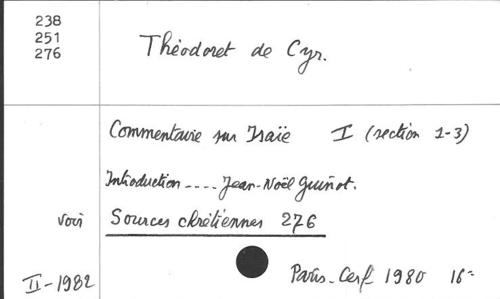 238
251
276
Théodoret de Cyr.
Commentaire sur Isaïe I (section 1-3)
Introduction .... Jean-Noël Guinot.
voir Sources chrétiennes 276
II-1982 Paris-Cerf 1980 16=